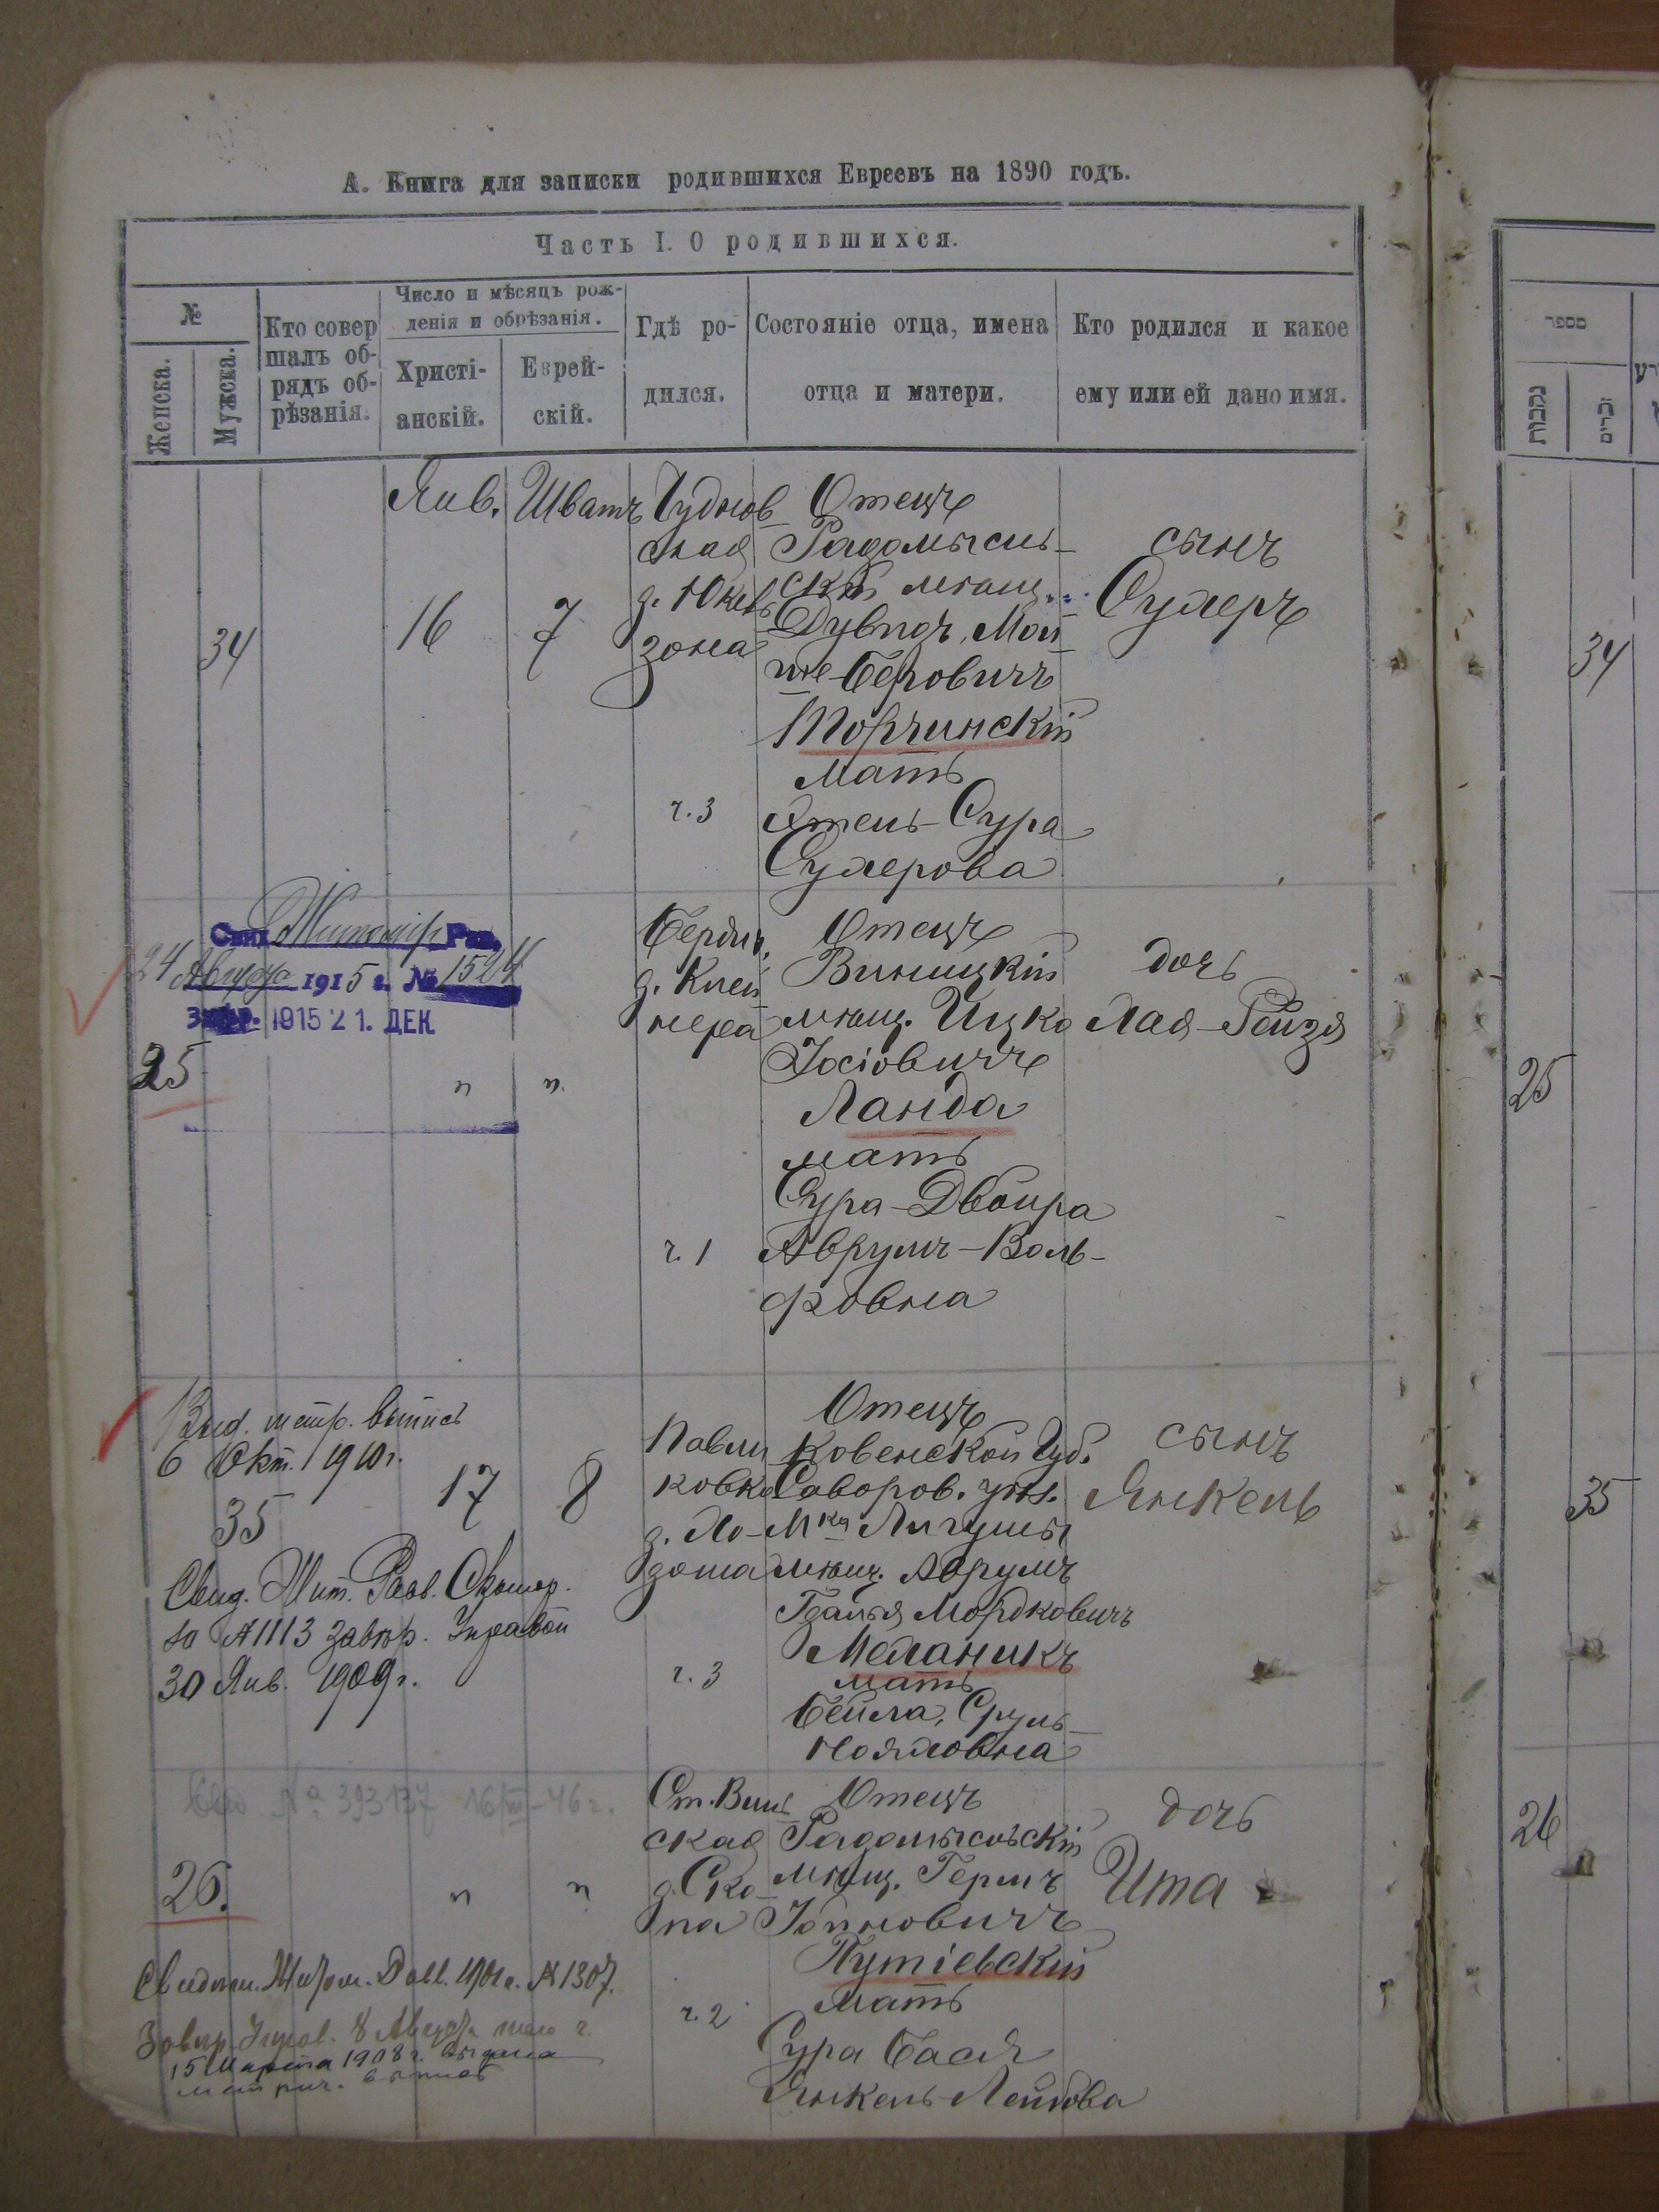 А. Книга для записки родившихся Евреевъ на 1890 годъ.
Часть I. О родившихся.
№
Женска.
Мужска.
Кто совер
шалъ об-
рядъ об-
рѣзанія.
Число и мѣсяцъ рож-
денія и обрѣзанія.
Христі-
анскій.
Еврей-
скій.
Гдѣ ро-
дился.
Состояніе отца, имена
отца и матери.
Кто родился и какое
ему или ей дано имя.
34
Янв.
16
Шватъ
7
Чуднов
ская
зона
ч. 3
Отецъ
Радомысль-
скій мѣщ.
Мой
ше-Беровичъ
Торчинскій
мать
Этель-Сура
Сухерова
сынъ
Сухеръ
Житомір Рав.
24 Августа 1915 г. № 1524
1915 21. ДЕК.
25
"
"
Бердич.
д. Клей
нера
ч. 1
Отецъ
Виницкій
мѣщ. Ицко
Іосіовичъ
Ланда
мать
Сура-Двойра
Аврумъ-Воль-
фовна
дочь
Лая-Рейзя
Выд. метр. выпись
6 Окт. 1910 г.
35
17
8
Свид. Жит. Равв.
за № 1113 завѣр. Управой
30 Янв. 1909 г.
Павли
ковка
ч. 3
Отецъ
Ковенской Губ.
уѣз.
мѣщ. Аврумъ
Гдалья Мордковичъ
Меламикъ
мать
Бейла, Сруль
сынъ
Янкель
№ 393137
26.
"
"
Свидѣт. Житом. Равв. № 1307.
8 Августа
15 Марта 1908 г. выдана
метрич. выпись
Ст. Виль
ская
д. Ско
па
ч. 2
Отецъ
Радомысльскій
мѣщ. Гершъ
Путіевскій
мать
Сура Бася
Янкель-Лейбова
дочь
Ита
מספר
נקבות
זכרים
34
25
35
26